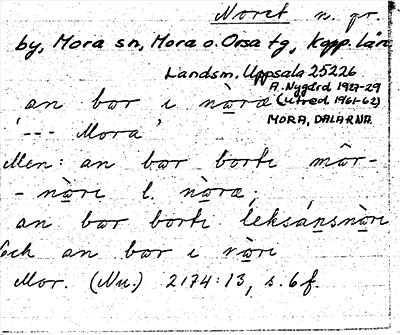 Noret n. gr.
by, Mora sn, Mora o. Orsa tg, Kopp. län
Landsm. Uppsala 25226
A. Nygård 1927-29
an bor i nàrǝ (utred 1961-62)
'--- Mora' MORA, DALARNA
Men: an bor borti mår-
- nàri l. nàrǝ;
an bor borti leksánsnàri
och an bor i nàri
Mor. (Nu.) 2174:13, s. 6 f.